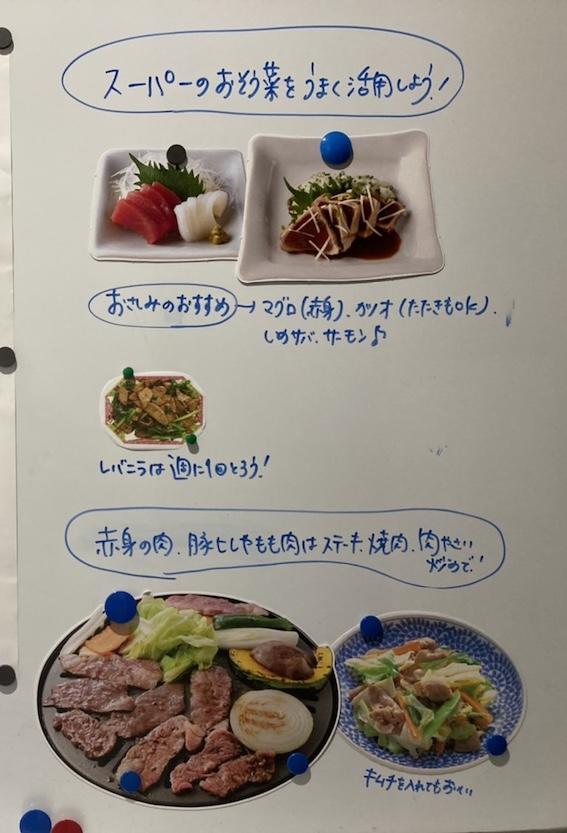 スーパーのおそう菜をうまく活用しよう!
おさしみのおすすめ→マグロ(赤身)、カツオ(たたきもOK)、
しめサバ、サーモン♪
レバニラは週に1回とろう!
赤身の肉、豚ヒレやもも肉はステーキ、焼肉、肉やさい
炒めで!
キムチを入れてもおいしい